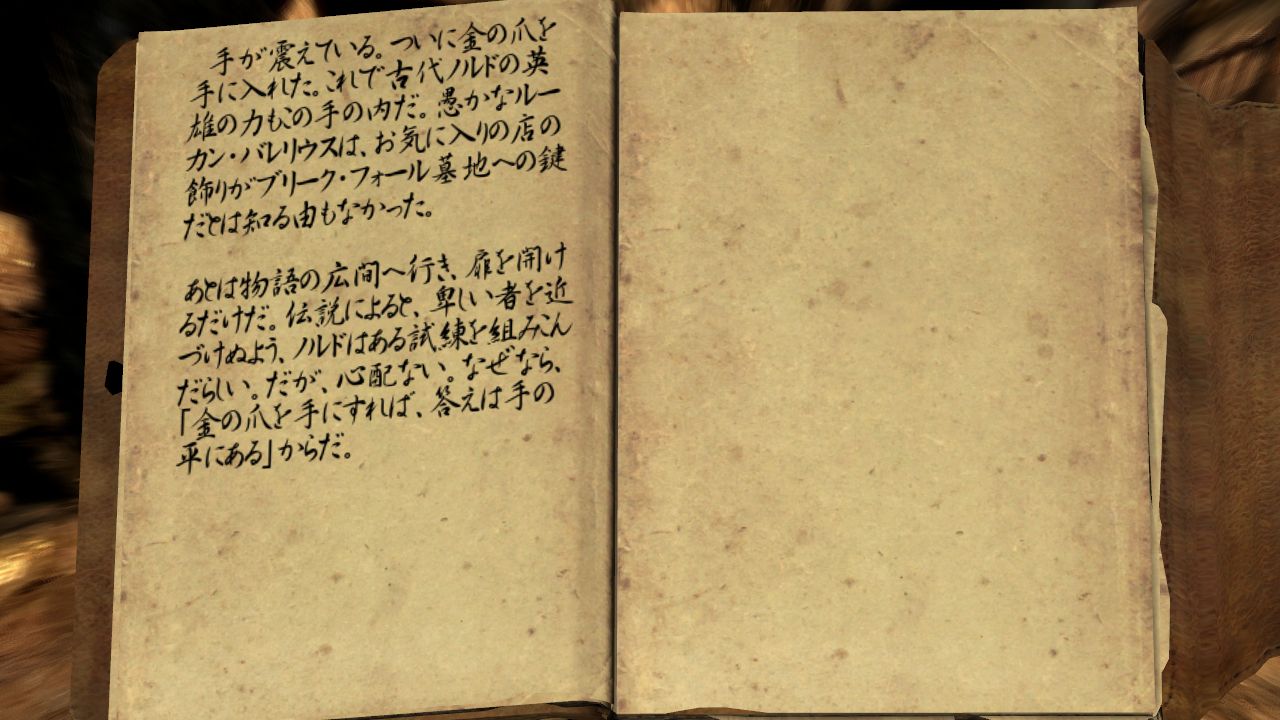 手が震えている。ついに金の爪を
手に入れた。これで古代ノルドの英
雄の力もこの手の内だ。愚かなルー
カン・バレリウスは、お気に入りの店の
飾りがブリーク・フォール墓地への鍵
だとは知る由もなかった。
あとは物語の広間へ行き、扉を開け
るだけだ。伝説によると、卑しい者を近
づけぬよう、ノルドはある試練を組みこん
だらしい。だが、心配ない。なぜなら、
「金の爪を手にすれば、答えは手の
平にある」からだ。